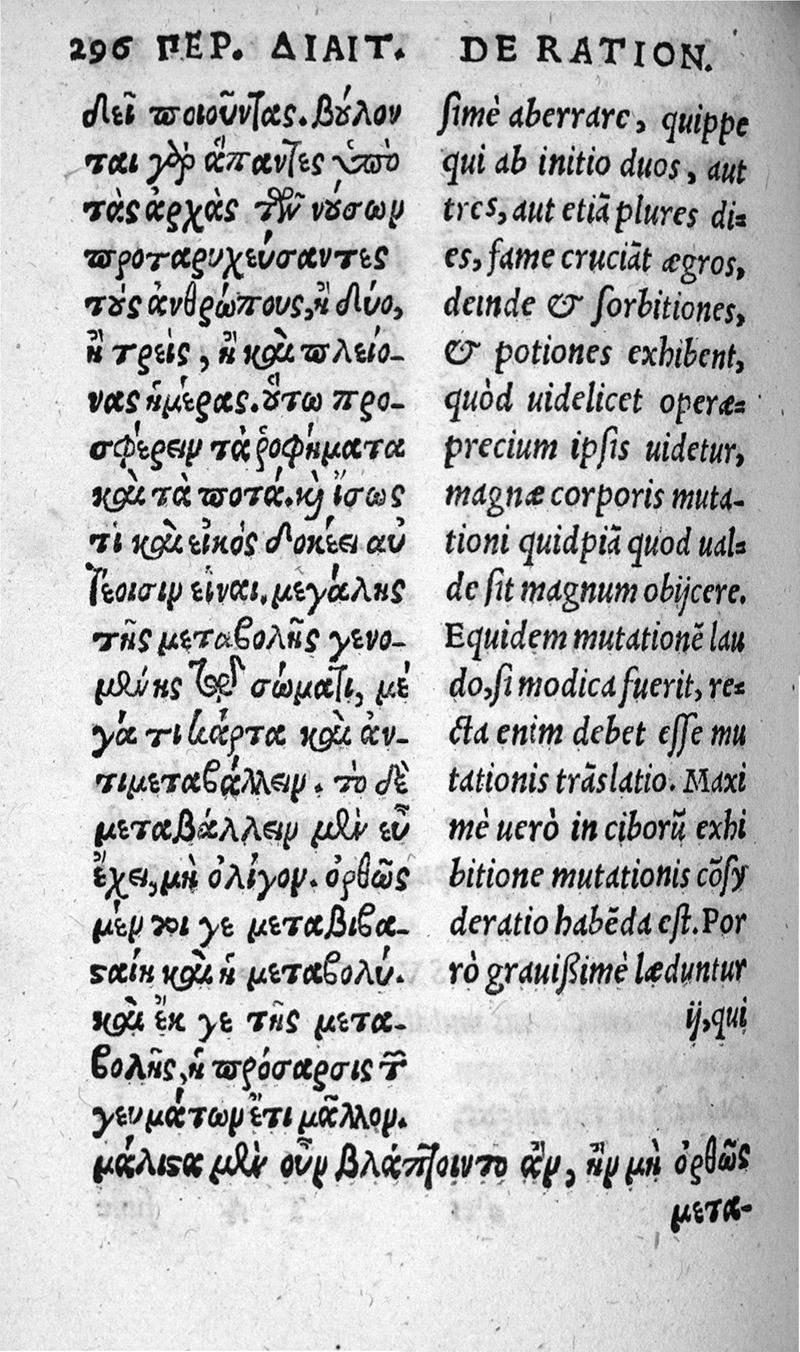 296 ΠΕΡ. ΔΙΑΙΤ.
δεῖ ποιοῦντας. βούλον
ται γὰρ ἅπαντες ὑπὸ
τὰς ἀρχὰς τῶν νούσων
προταρυχεύσαντες
τοὺς ἀνθρώπους, ἢ δύο,
ἢ τρεῖς, ἢ καὶ πλείο-
νας ἡμέρας. οὕτω προ-
σφέρειν τὰ ῥοφήματα
καὶ τὰ ποτά. καὶ ἴσως
τὶ καὶ εἰκὸς δοκέει αὐ
τέοισιν εἶναι, μεγάλης
τῆς μεταβολῆς γενο-
μένης τῷ σώματι, μέ
γά τι κάρτα καὶ ἀν-
τιμεταβάλλειν. τὸ δὲ
μεταβάλλειν μὲν εὖ
ἔχει, μὴ ὀλίγον. ὀρθῶς
μέν τοι γε μεταβιβα-
σταίη καὶ ἡ μεταβολή.
καὶ ἔκ γε τῆς μετα-
βολῆς, ἡ πρόσαρσις τῶν
γευμάτων ἔτι μᾶλλον.
μάλιστα μὲν οὖν βλάπτοιντο ἂν, ἢν μὴ ὀρθῶς
μετα-
DE RATION.
simè aberrare, quippe
qui ab initio duos, aut
tres, aut etiã plures di-
es, fame cruciãt ægros,
deinde & sorbitiones,
& potiones exhibent,
quòd uidelicet operæ-
precium ipsis uidetur,
magnæ corporis muta-
tioni quidpiã quod ual-
de sit magnum obijcere.
Equidem mutationẽ lau
do, si modica fuerit, re-
cta enim debet esse mu
tationis trãslatio. Maxi
mè uerò in ciborũ exhi
bitione mutationis cõsy
deratio habẽda est. Por
rò grauißimè læduntur
ij, qui